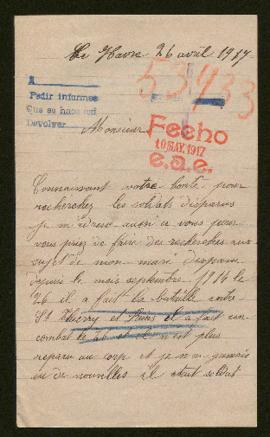 Le Havre 26 avril 1917
53933
A
Pedir informes
Que se hace así
Devolver
Fecho
10 MAY. 1917
e.a.e.
Monsieur
Connaissant votre bonté pour
rechercher les soldats disparus
je m'adresse aussi a vous pour
vous prier de faire des recherches au
sujet de mon mari disparu
depuis le mois septembre 1914 le
26 il a fait la bataille entre
St Thierry et Reims il a fait un
combat le 26 et n'est plus
reparu au corp et je n'ai jamais
eu de nouvelles il etait soldat